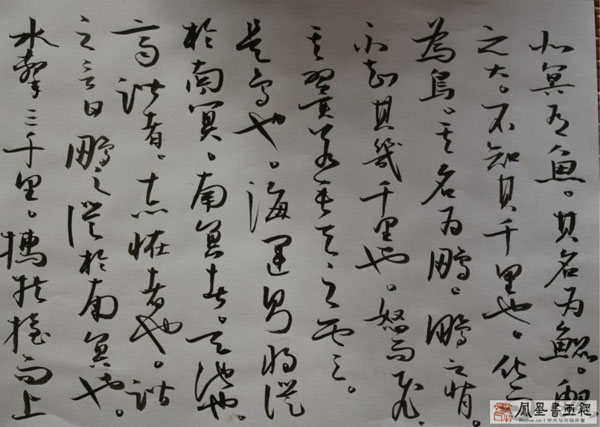 北冥有魚。其名为鯤。鯤
之大。不知其千里也。化而
為鳥。其名为鵬。鵬之背。
不知其幾千里也。怒而飞
其翼若垂天之雲。
是鸟也。海運則将徙
於南冥。南冥者。天池也。
齐諧者。志怪者也。諧
之言曰鵬之徙於南冥也。
水擊三千里。摶扶摇而上